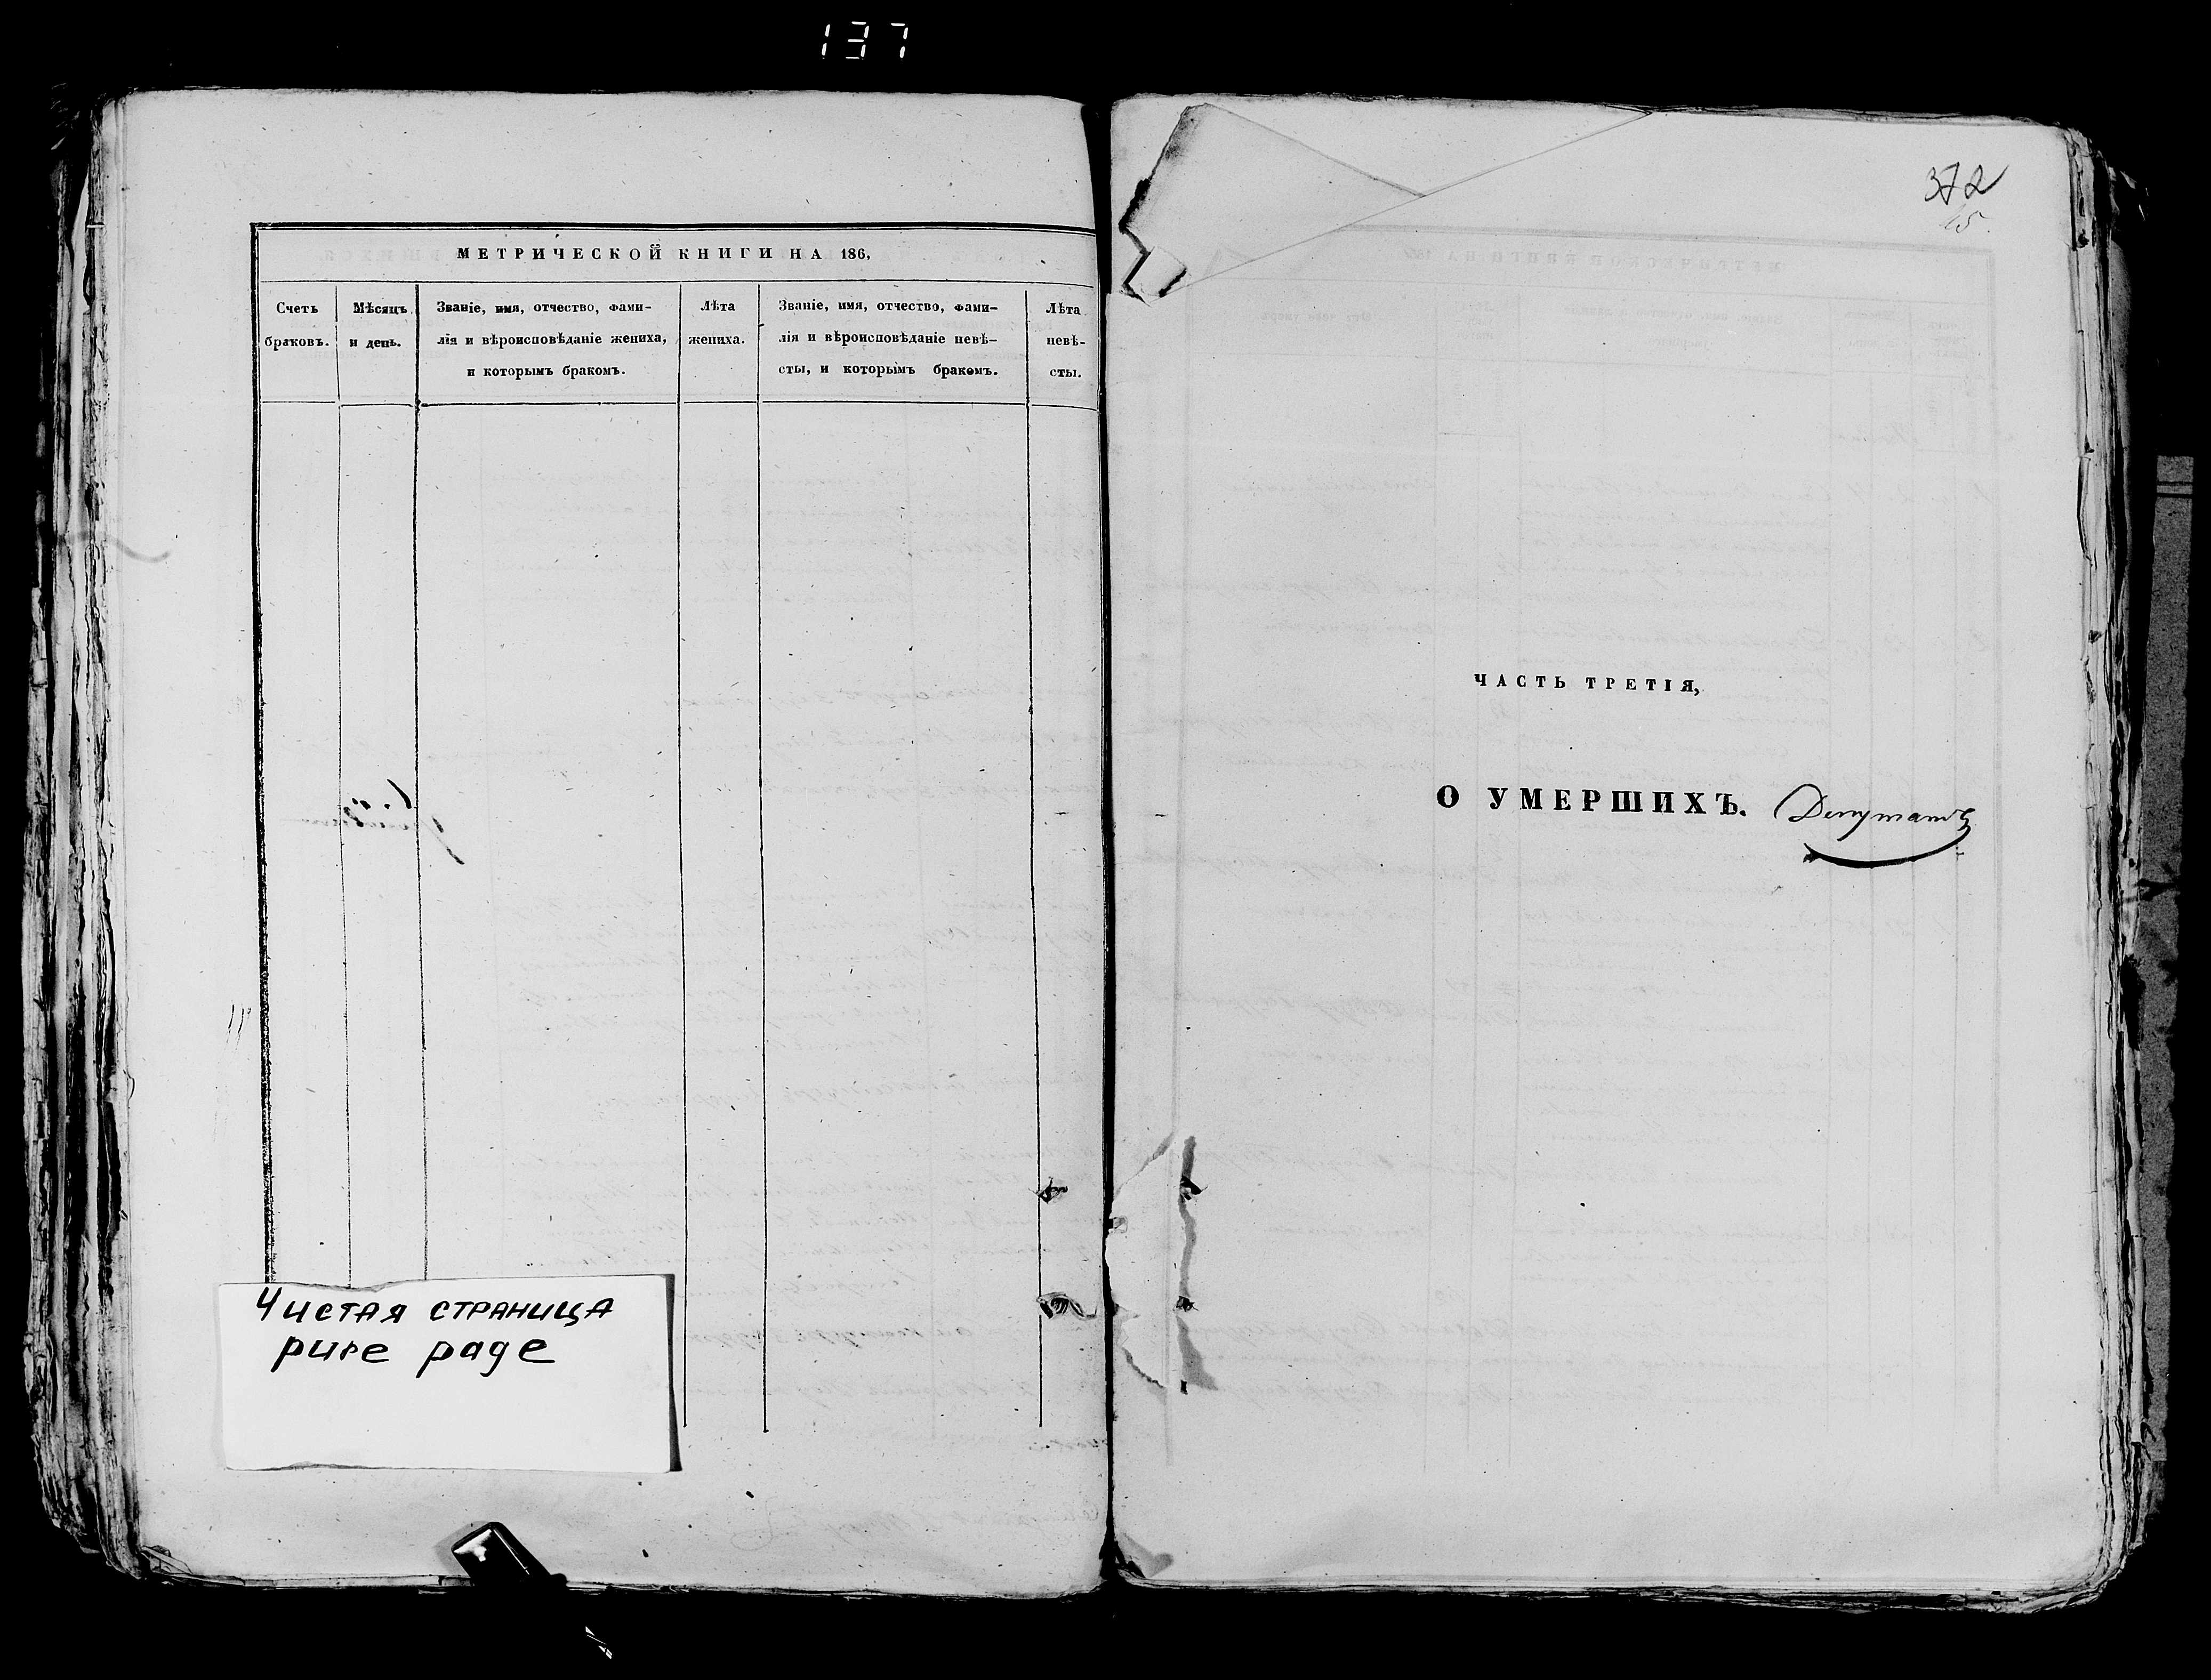 137
МЕТРИЧЕСКОЙ КНИГИ НА 186,
Счетъ браковъ.
Мѣсяцъ и день.
Званіе, имя, отчество, фами-
лія и вѣроисповѣданіе жениха,
и которымъ бракомъ.
Лѣта
жениха.
Званіе, имя, отчество, фами-
лія и вѣроисповѣданіе невѣ-
сты, и которымъ бракомъ.
Лѣта
невѣ-
сты.
Чистая страница
pure page
372
ЧАСТЬ ТРЕТІЯ,
О УМЕРШИХЪ. Депутатъ